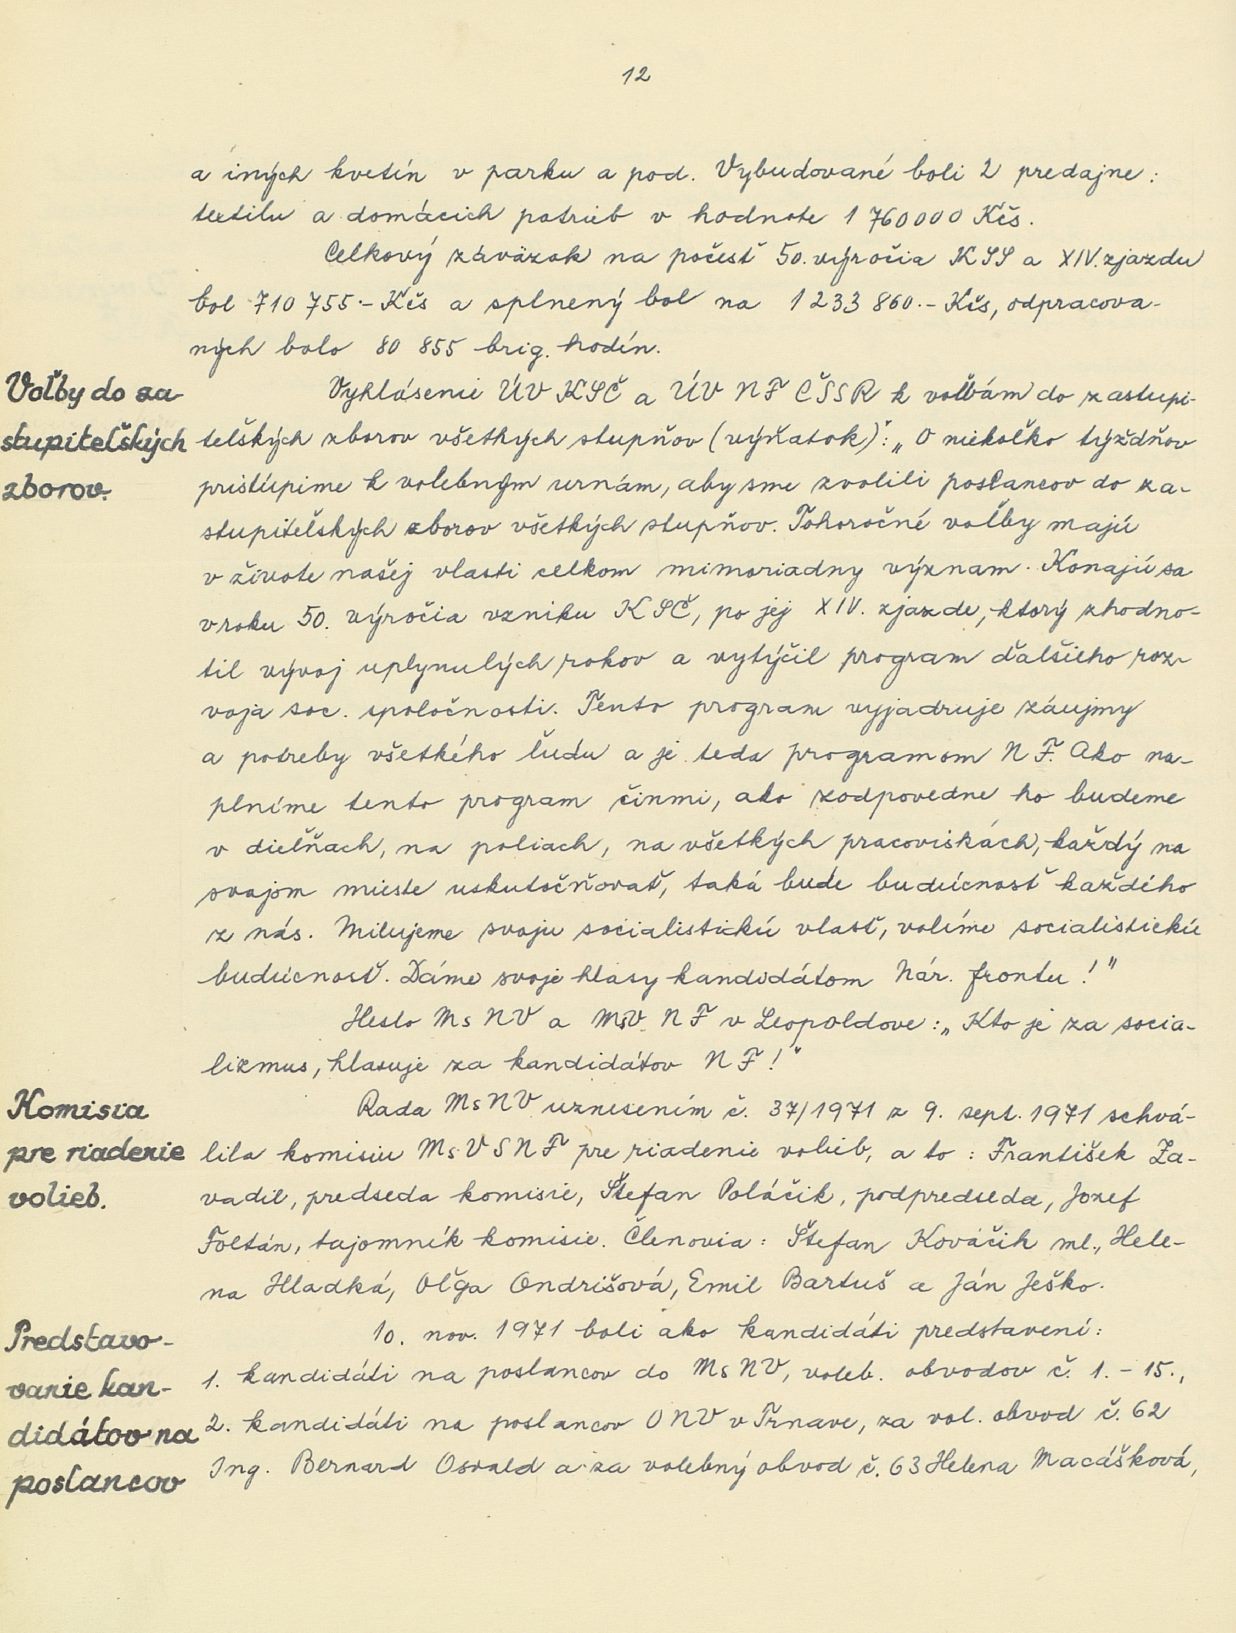 12
a iných kvetín v parku a pod. Vybudované boli 2 predajne:
textilu a domácich potrieb v hodnote 1 760000 Kčs.
Celkový záväzok na počesť 50. výročia KSS a XIV. zjazdu
bol 710 755.- Kčs a splnený bol na 1 233 860.- Kčs, odpracova-
ných bolo 80 855 brig. hodín.
Voľby do za-
stupiteľských
zborov.
Vyhlásenie ÚV KSČ a ÚV NF ČSSR k voľbám do zastupi-
teľských zborov všetkých stupňov (výňatok): „O niekoľko týždňov
pristúpime k volebným urnám, aby sme zvolili poslancov do za-
stupiteľských zborov všetkých stupňov. Tohoročné voľby majú
v živote našej vlasti celkom mimoriadny význam. Konajú sa
v roku 50. výročia vzniku KSČ, po jej XIV. zjazde, ktorý zhodno-
til vývoj uplynulých rokov a vytýčil program ďalšieho roz-
voja soc. spoločnosti. Tento program vyjadruje záujmy
a potreby všetkého ľudu a je teda programom NF. Ako na-
plníme tento program činmi, ako zodpovedne ho budeme
v dielňach, na poliach, na všetkých pracoviskách, každý na
svojom mieste uskutočňovať, taká bude budúcnosť každého
z nás. Milujeme svoju socialistickú vlasť, volíme socialistickú
budúcnosť. Dáme svoje hlasy kandidátom Nár. frontu!"
Heslo MsNV a MsV NF v Leopoldove: „Kto je za socia-
lizmus, hlasuje za kandidátov NF!"
Komisia
pre riadenie
volieb.
Rada MsNV uznesením č. 37/1971 z 9. sept. 1971 schvá-
lila komisiu MsV SNF pre riadenie volieb, a to: František Za-
vadil, predseda komisie, Štefan Poláčik, podpredseda, Jozef
Foltán, tajomník komisie. Členovia: Štefan Kováčik ml., Hele-
na Hladká, Oľga Ondrišová, Emil Bartuš a Ján Ješko.
Predstavo-
vanie kan-
didátov na
poslancov
10. nov. 1971 boli ako kandidáti predstavení:
1. kandidáti na poslancov do MsNV, voleb. obvodov č. 1.-15.,
2. kandidáti na poslancov ONV v Trnave, za vol. obvod č. 62
Ing. Bernard Osvald a za volebný obvod č. 63 Helena Macášková,